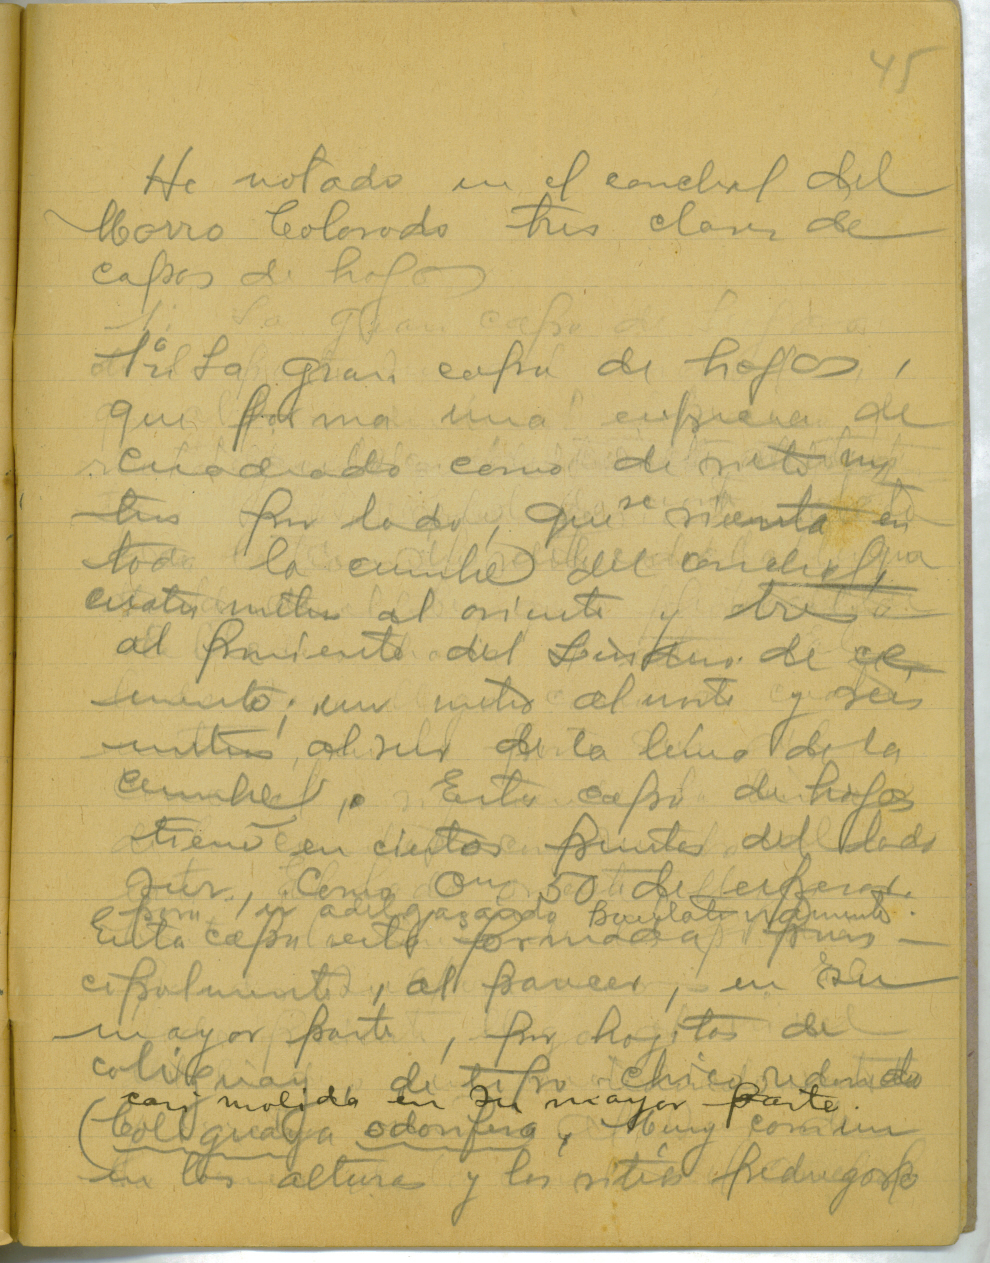 45
He notado en el conchal del
Morro Colorado tres clases de
capas de hojas
1ª La gran capa de hojas,
que forma una especie de
cuadrado como de siete me
tros por lado, que se sienta en
toda la cumbre del conchal,
cuatro metros al oriente y tres
al poniente del de ce
mento; un metro al norte y seis
metros al sur de la línea de la
cumbre. Esta capa de hojas
tiene en ciertos puntos del lado
sur, como 0m 50 de espesor.
pero, va adelgazando paulatinamente.
Esta capa está formada prin
cipalmente, al parecer, en su
mayor parte, por hojitas de
coliguay de tipo chico redondo
casi molida en su mayor parte.
(Coliguaya odorifera, muy común
en las alturas y los sitios pedregosos